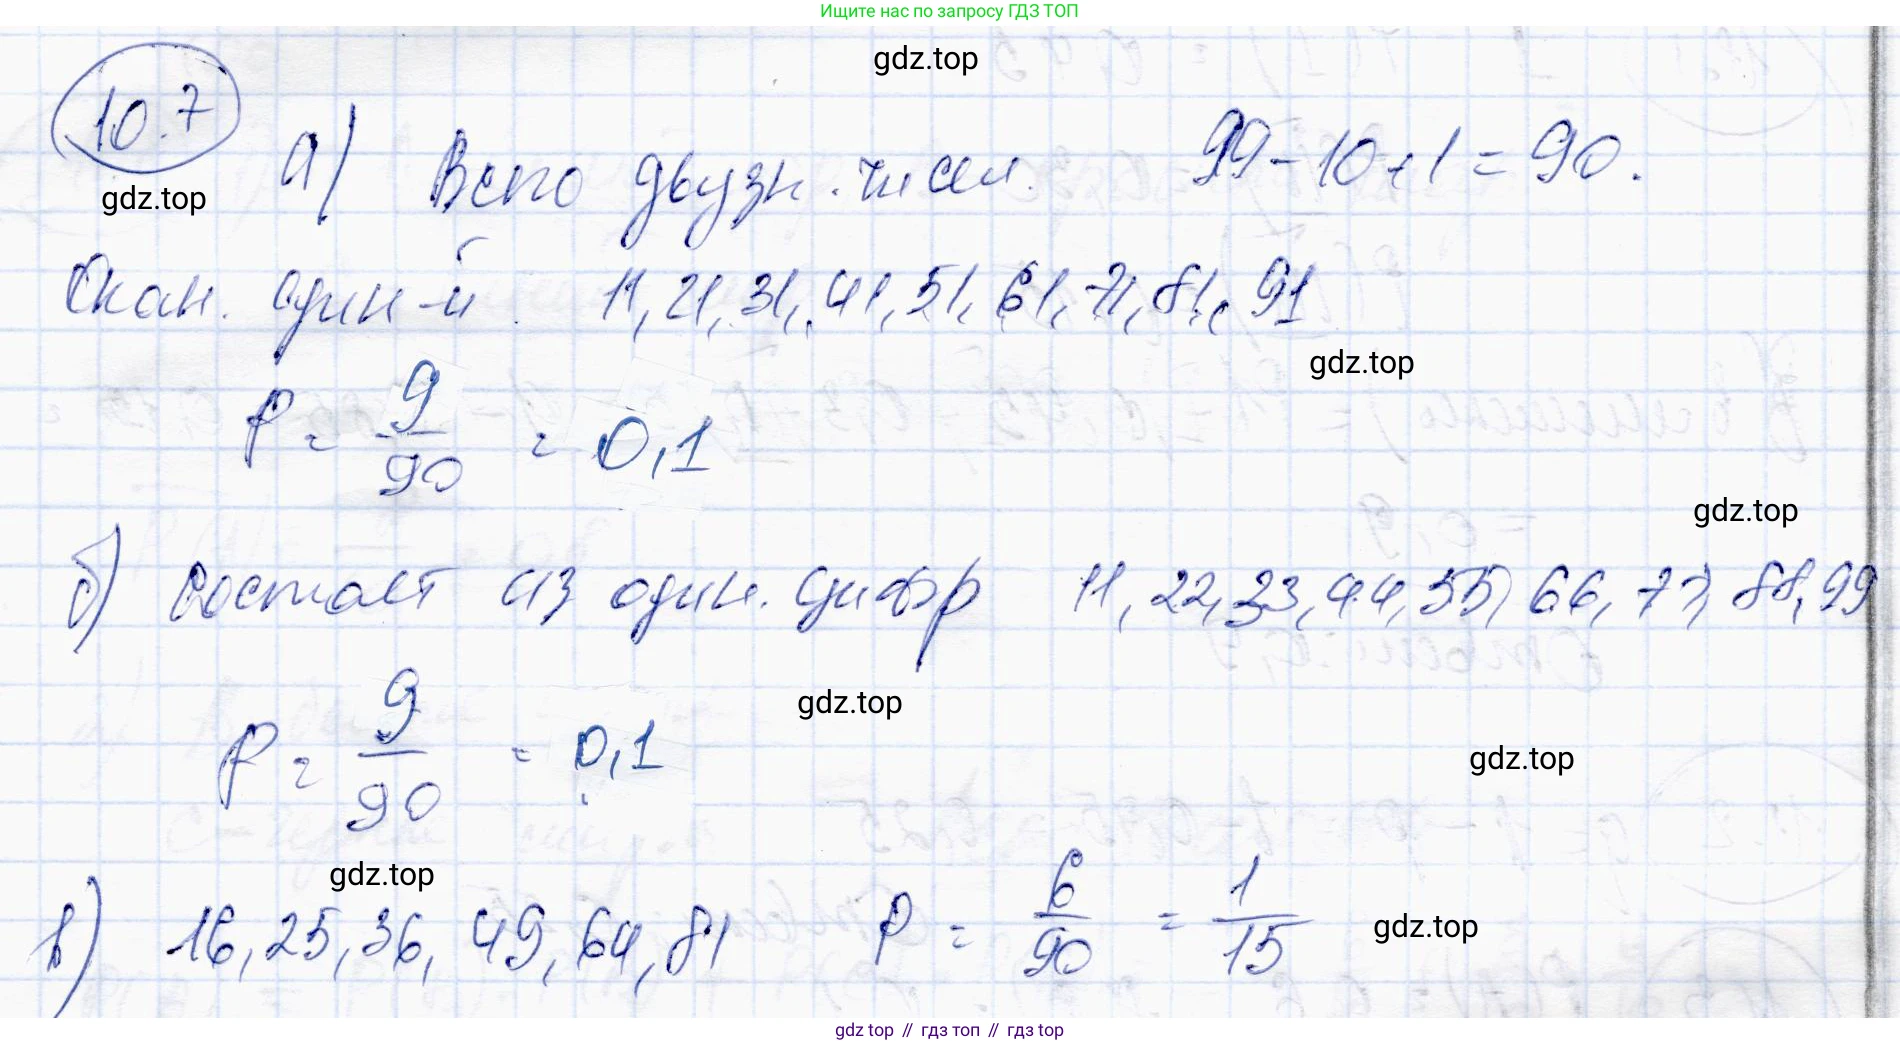 Ищите нас по запросу ГДЗ ТОП
gdz.top
10.7
gdz.top
а) Всего двузн. чисел. 99-10+1=90.
Окан. един-й 11, 21, 31, 41, 51, 61, 71, 81, 91
gdz.top
P = 9/90 = 0,1
gdz.top
б) состоят из один. цифр 11, 22, 33, 44, 55, 66, 77, 88, 99
gdz.top
P = 9/90 = 0,1
gdz.top
gdz.top
в) 16, 25, 36, 49, 64, 81 P = 6/90 = 1/15
gdz.top
gdz top // гдз топ // гдз top